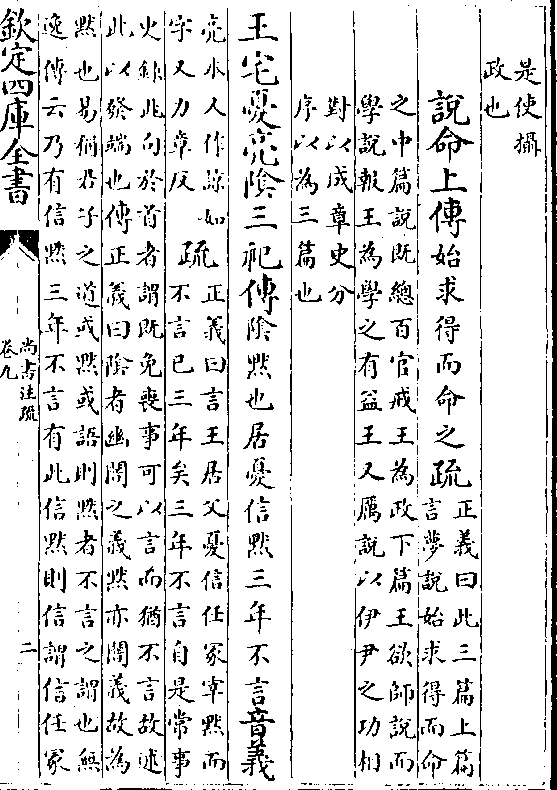 是使攝
政也
說命上傳始求得而命之疏
正義曰此三篇上篇
言夢說始求得而命
之中篇說既總百官戒王為政下篇王欲師說而
學說報王為學之有益王又厲說以伊尹之功相
對以成章史分
序以為三篇也
王宅憂亮隂三祀傳隂黙也居憂信黙三年不言音義
亮本人作諒如
字又力章反
疏
正義曰言王居父憂信任冢宰黙而
不言已三年矣三年不言自是常事
史錄此句於首者謂既免喪事可以言而猶不言故述
此以發端也傳正義曰隂者幽闇之義黙亦闇義故為
黙也易稱君子之道或黙或語則黙者不言之謂也無
逸傳云乃有信黙三年不言有此信黙則信謂信任冢
欽定四庫全書
尚書注疏
卷九
二